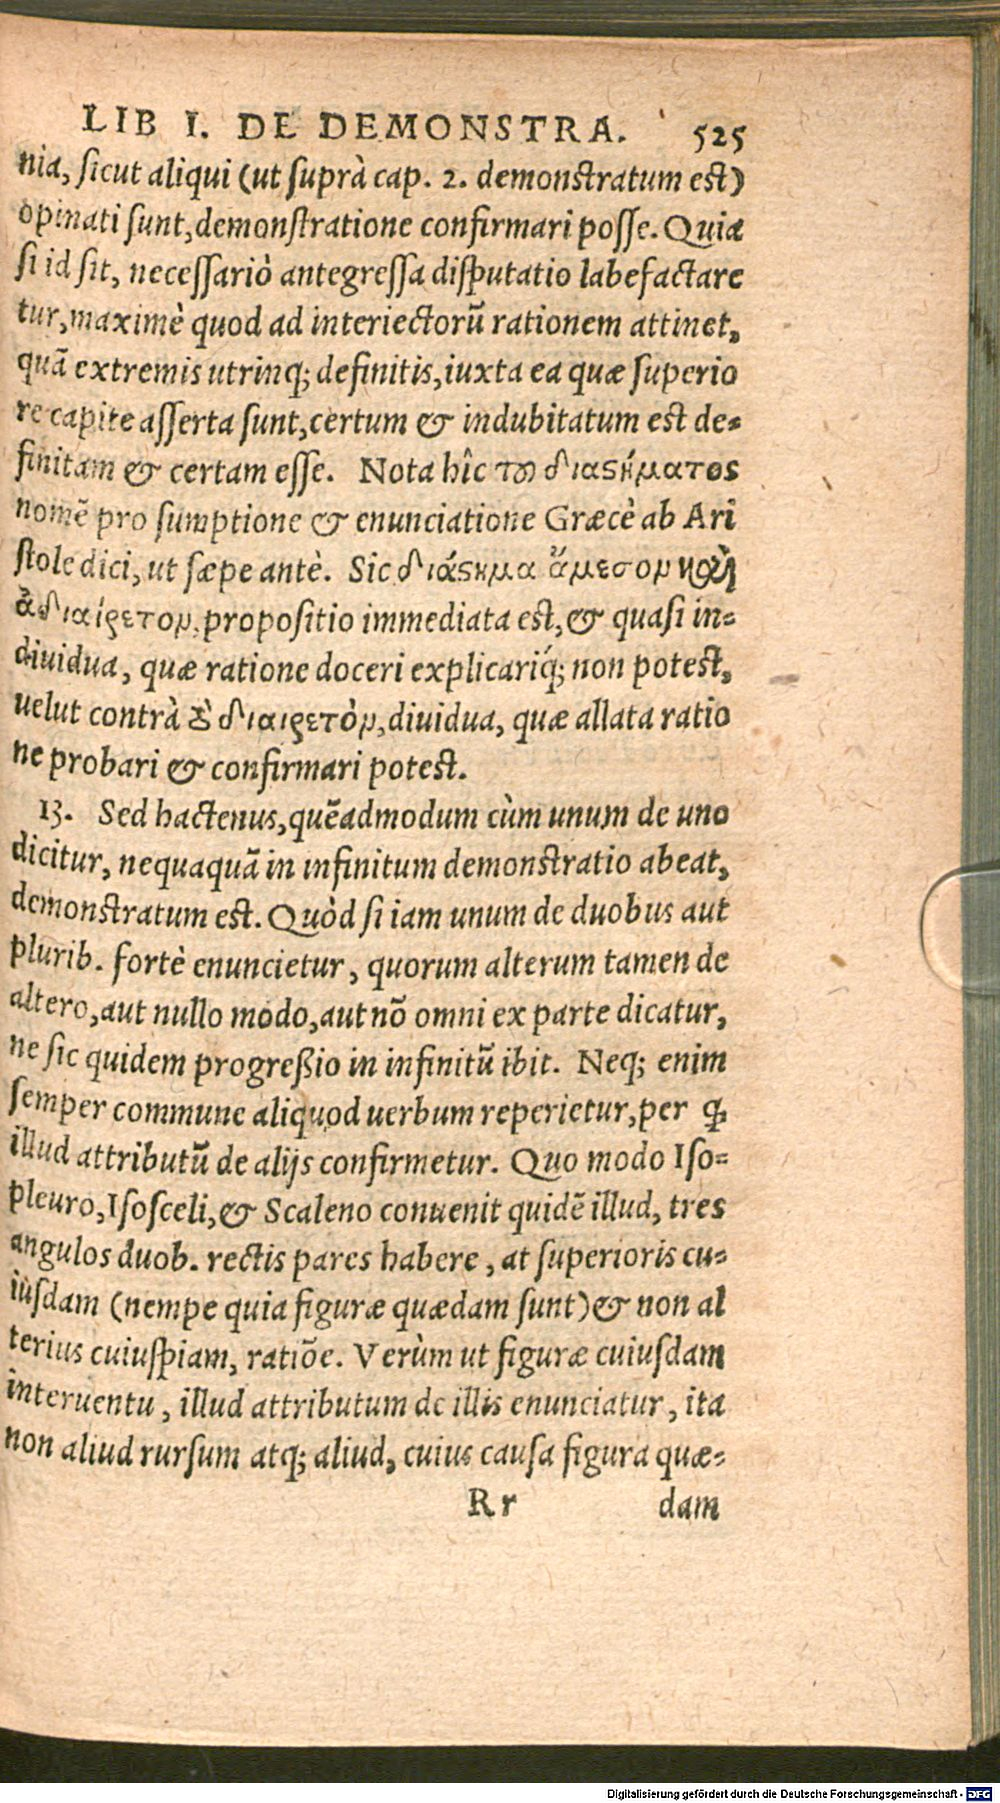 LIB I. DE DEMONSTRA. 525
nia, sicut aliqui (ut suprà cap. 2. demonstratum est)
opinati sunt, demonstratione confirmari posse. Quia
si id sit, necessariò antegressa disputatio labefactare
tur, maximè quod ad interiectorũ rationem attinet,
quã extremis utrinq; definitis, iuxta ea quæ superio
re capite asserta sunt, certum & indubitatum est de-
finitam & certam esse. Nota hîc τοῦ διαστήματος
nomẽ pro sumptione & enunciatione Græcè ab Ari
stole dici, ut sæpe antè. Sic διάστημα ἄμεσον καὶ
ἀδιαίρετον, propositio immediata est, & quasi in-
diuidua, quæ ratione doceri explicariq́; non potest,
uelut contrà διαιρετὸν, diuidua, quæ allata ratio
ne probari & confirmari potest.
13. Sed hactenus, quẽadmodum cùm unum de uno
dicitur, nequaquã in infinitum demonstratio abeat,
demonstratum est. Quòd si iam unum de duobus aut
plurib. fortè enuncietur, quorum alterum tamen de
altero, aut nullo modo, aut nõ omni ex parte dicatur,
ne sic quidem progreßio in infinitũ ibit. Neq; enim
semper commune aliquod uerbum reperietur, per q̃
illud attributũ de alijs confirmetur. Quo modo Iso-
pleuro, Isosceli, & Scaleno conuenit quidẽ illud, tres
angulos duob. rectis pares habere, at superioris cu-
iusdam (nempe quia figuræ quædam sunt) & non al
terius cuiuspiam, ratiõe. Verùm ut figuræ cuiusdam
interuentu, illud attributum de illis enunciatur, ita
non aliud rursum atq; aliud, cuius causa figura quæ-
Rr dam
Digitalisierung gefördert durch die Deutsche Forschungsgemeinschaft - DFG